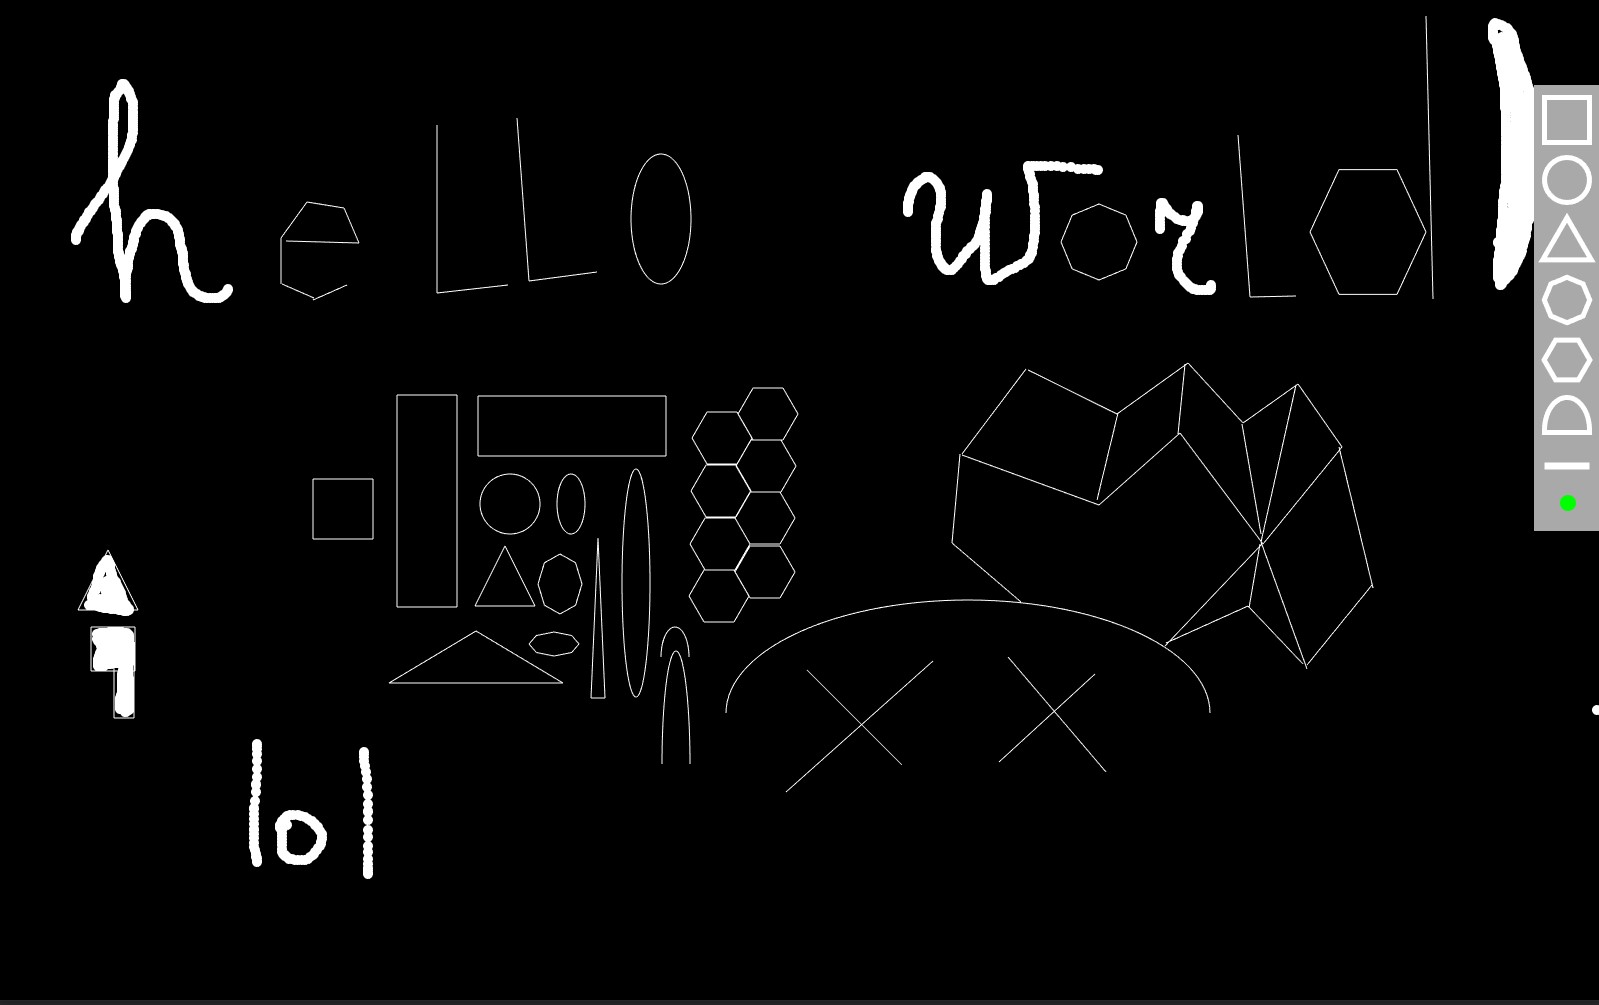 heLLO world)
lol